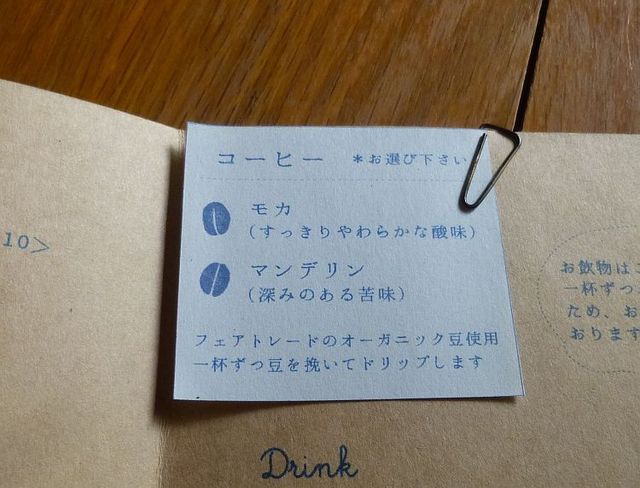 コーヒー ＊お選び下さい
モカ
(すっきりやわらかな酸味)
マンデリン
(深みのある苦味)
フェアトレードのオーガニック豆使用
一杯ずつ豆を挽いてドリップします
10>
お飲物は
一杯ずつ
ため、お
おります
Drink